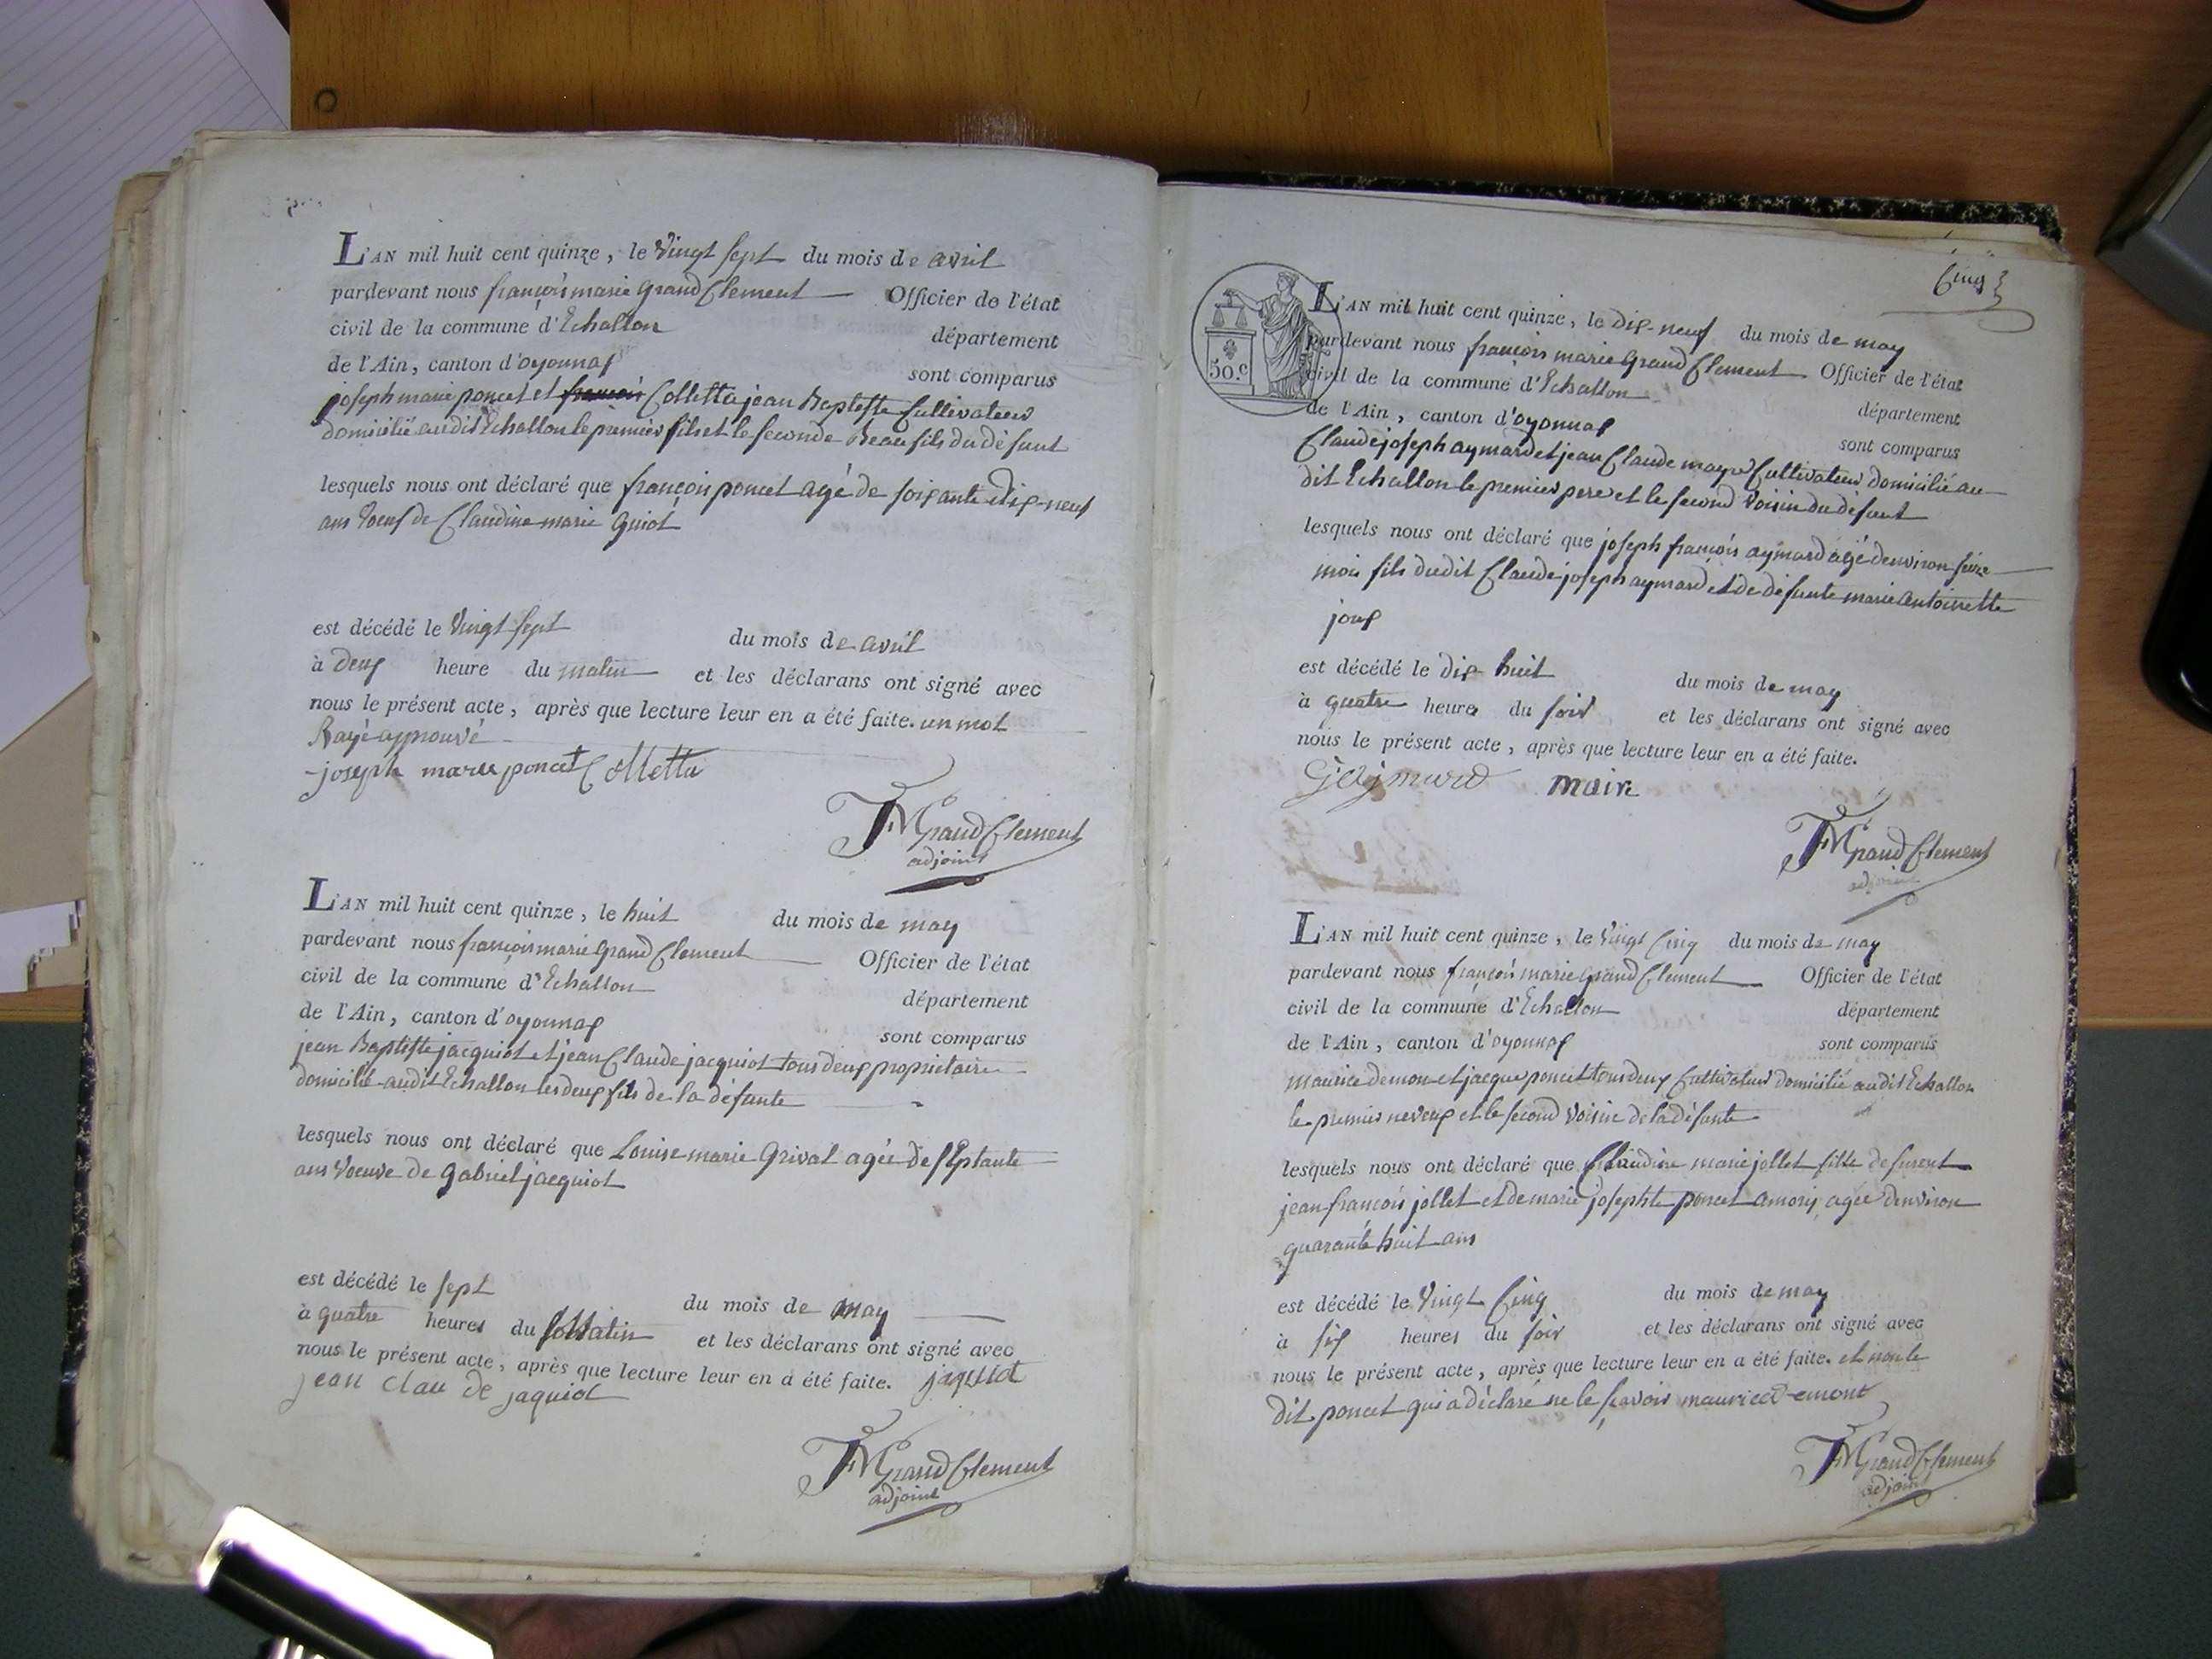 L'AN mil huit cent quinze, le vingt sept du mois de avril
pardevant nous françois marie Grand Clement Officier de l'état
civil de la commune d'Echallon département
de l'Ain, canton d'oyonnax sont comparus
joseph marie poncet et françois Colletta jean Baptiste Cultivateurs
domicilié audit Echallon le premier fils et le seconde Beau fils du défunt
lesquels nous ont déclaré que françois poncet agé de soixante dix-neuf
ans voeuf de Claudine marie Guiot
est décédé le vingt sept du mois de avril
à deux heure du matin et les déclarans ont signé avec
nous le présent acte, après que lecture leur en a été faite. un mot
Rayé approuvé
joseph marie poncet Colletta
FM Grand Clement
adjoint
L'AN mil huit cent quinze, le huit du mois de may
pardevant nous françois marie Grand Clement Officier de l'état
civil de la commune d'Echallon département
de l'Ain, canton d'oyonnax sont comparus
jean Baptiste jacquiot et jean Claude jacquiot tous deux proprietaire
domicilié audit Echallon les deux fils de la défunte
lesquels nous ont déclaré que Louise marie Grival agée de septante
ans voeuve de Gabriel jacquiot
est décédé le sept du mois de may
à quatre heures du Matin et les déclarans ont signé avec
nous le présent acte, après que lecture leur en a été faite. jaquiot
jean clau de jaquiot
FM Grand Clement
adjoint
Cinq
50.c
L'AN mil huit cent quinze, le dix-neuf du mois de may
pardevant nous françois marie Grand Clement Officier de l'état
civil de la commune d'Echallon département
de l'Ain, canton d'oyonnax sont comparus
Claude joseph aymard et jean Claude mayre Cultivateur domicilié au
dit Echallon le premier pere et le second voisin du défunt
lesquels nous ont déclaré que joseph françois aymard agé denviron seize
mois fils dudit Claude joseph aymard et de défunte marie antoinette
joux
est décédé le dix huit du mois de may
à quatre heures du soir et les déclarans ont signé avec
nous le présent acte, après que lecture leur en a été faite.
maire
FM Grand Clement
adjoint
L'AN mil huit cent quinze, le vingt Cinq du mois de may
pardevant nous françois marie Grand Clement Officier de l'état
civil de la commune d'Echallon département
de l'Ain, canton d'oyonnax sont comparus
maurice demon et jacque poncet tous deux Cultivateurs domicilié audit Echallon
le premier neveux et le second voisin de la défunte
lesquels nous ont déclaré que Claudine marie jollet fille de furent
jean françois jollet et de marie josephte poncet amoris agée denviron
quarante huit ans
est décédé le vingt Cinq du mois de may
à six heures du soir et les déclarans ont signé avec
nous le présent acte, après que lecture leur en a été faite. et non le
dit poncet qui a déclaré ne le scavoir maurice demont
FM Grand Clement
adjoint